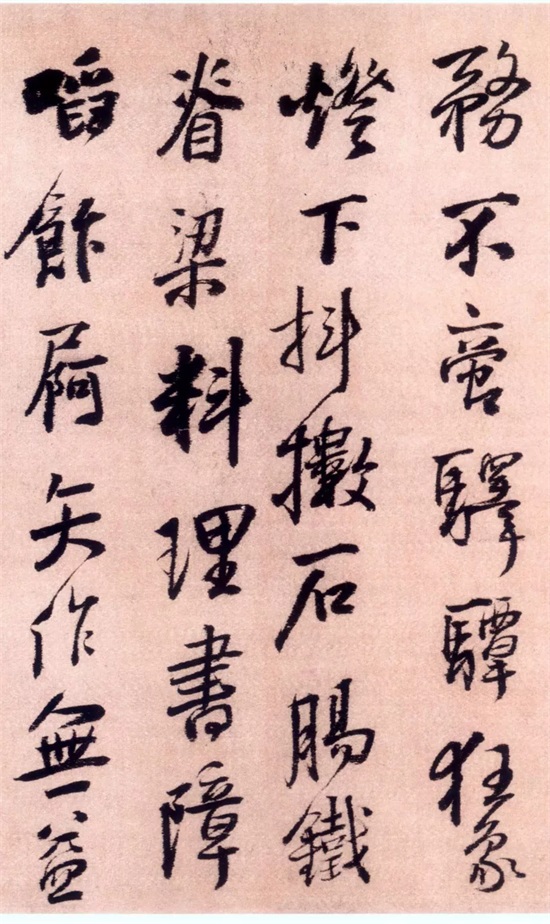 務不啻驛驔狂象
燈下抖擻石腸鐵
脊梁料理書障
啗飰屙矢作無益